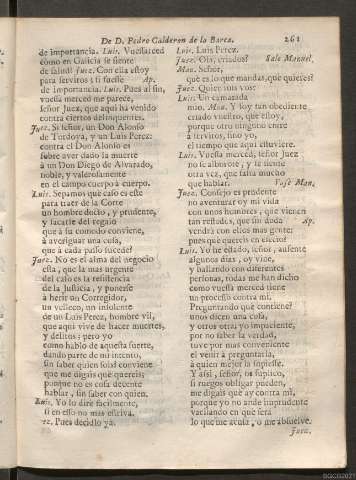 De D. Pedro Calderon de la Barca. 261
de importancia. Luis. Vuessarced
como en Galicia se siente
de salud? Juez. Con ella estoy
para serviros: si fuesse Ap.
de importancia. Luis. Pues al fin,
vuessa merced me parece,
señor Juez, que aqui ha venido
contra ciertos delinquentes.
Juez. Si señor, un Don Alonso
de Tordoya, y un Luis Perez:
contra el Don Alonso es
sobre aver dado la muerte
à un Don Diego de Alvarado,
noble, y valerosamente
en el campo cuerpo à cuerpo.
Luis. Sepamos què caso es este
para traer de la Corte
un hombre docto, y prudente,
y sacarle del regalo
que à su comodo conviene,
à averiguar una cosa,
que à cada passo sucede?
Juez. No es el alma del negocio
esta, que la mas urgente
del caso es la resistencia
de la Justicia, y ponerse
à herir un Corregidor,
un vellaco, un insolente
de un Luis Perez, hombre vil,
que aqui vive de hacer muertes,
y delitos: pero yo
como hablo de aquesta suerte,
dando parte de mi intento,
sin saber quien sois? conviene
que me digais què quereis;
porque no es cosa decente
hablar, sin saber con quien.
Luis. Yo lo dirè facilmente,
si en esso no mas estriva.
Juez. Pues decidlo ya.
Luis. Luis Perez.
Juez. Ola, criados? Sale Manuel.
Man. Señor,
què es lo que mandas, què quieres?
Juez. Quien sois vos?
Luis. Un camarada
mio. Man. Y soy tan obediente
criado vuestro, que estoy,
porque otro ninguno entre
à serviros, sino yo,
el tiempo que aqui estuviere.
Luis. Vuessa merced, señor Juez
no se alborote, y se siente
otra vez, que falta mucho
que hablar. Vase Man.
Juez. Consejo es prudente
no aventurar oy mi vida
con unos hombres, que vienen
tan restados, que sin duda Ap.
vendrà con ellos mas gente:
pues què quereis en efecto?
Luis. Yo he estado, señor, ausente
algunos dias, oy vine,
y hablando con diferentes
personas, todas me han dicho
como vuessa merced tiene
un processo contra mi.
Preguntando què contiene?
unos dicen una cosa,
y otros otra; yo impaciente,
por no saber la verdad,
tuve por mas conveniente
el venir à preguntarla,
à quien mejor la supiesse.
Y assi, señor, os suplico,
si ruegos obligar pueden,
me digais què ay contra mi,
porque yo no ande imprudente
vacilando en què serà
lo que me acusa, ò me absuelve.
Juez.